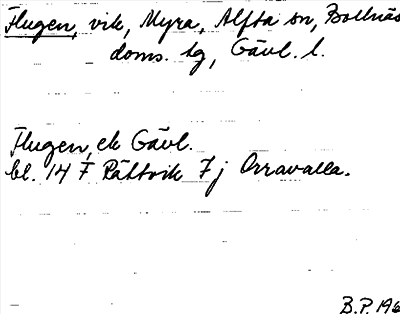 Flugen, vik, Myra, Alfta sn, Bollnäs
doms. lg, Gävl. l.
Flugen, ek Gävl.
bl. 14 F Rättvik 7j Orravalla.
B.P. 196